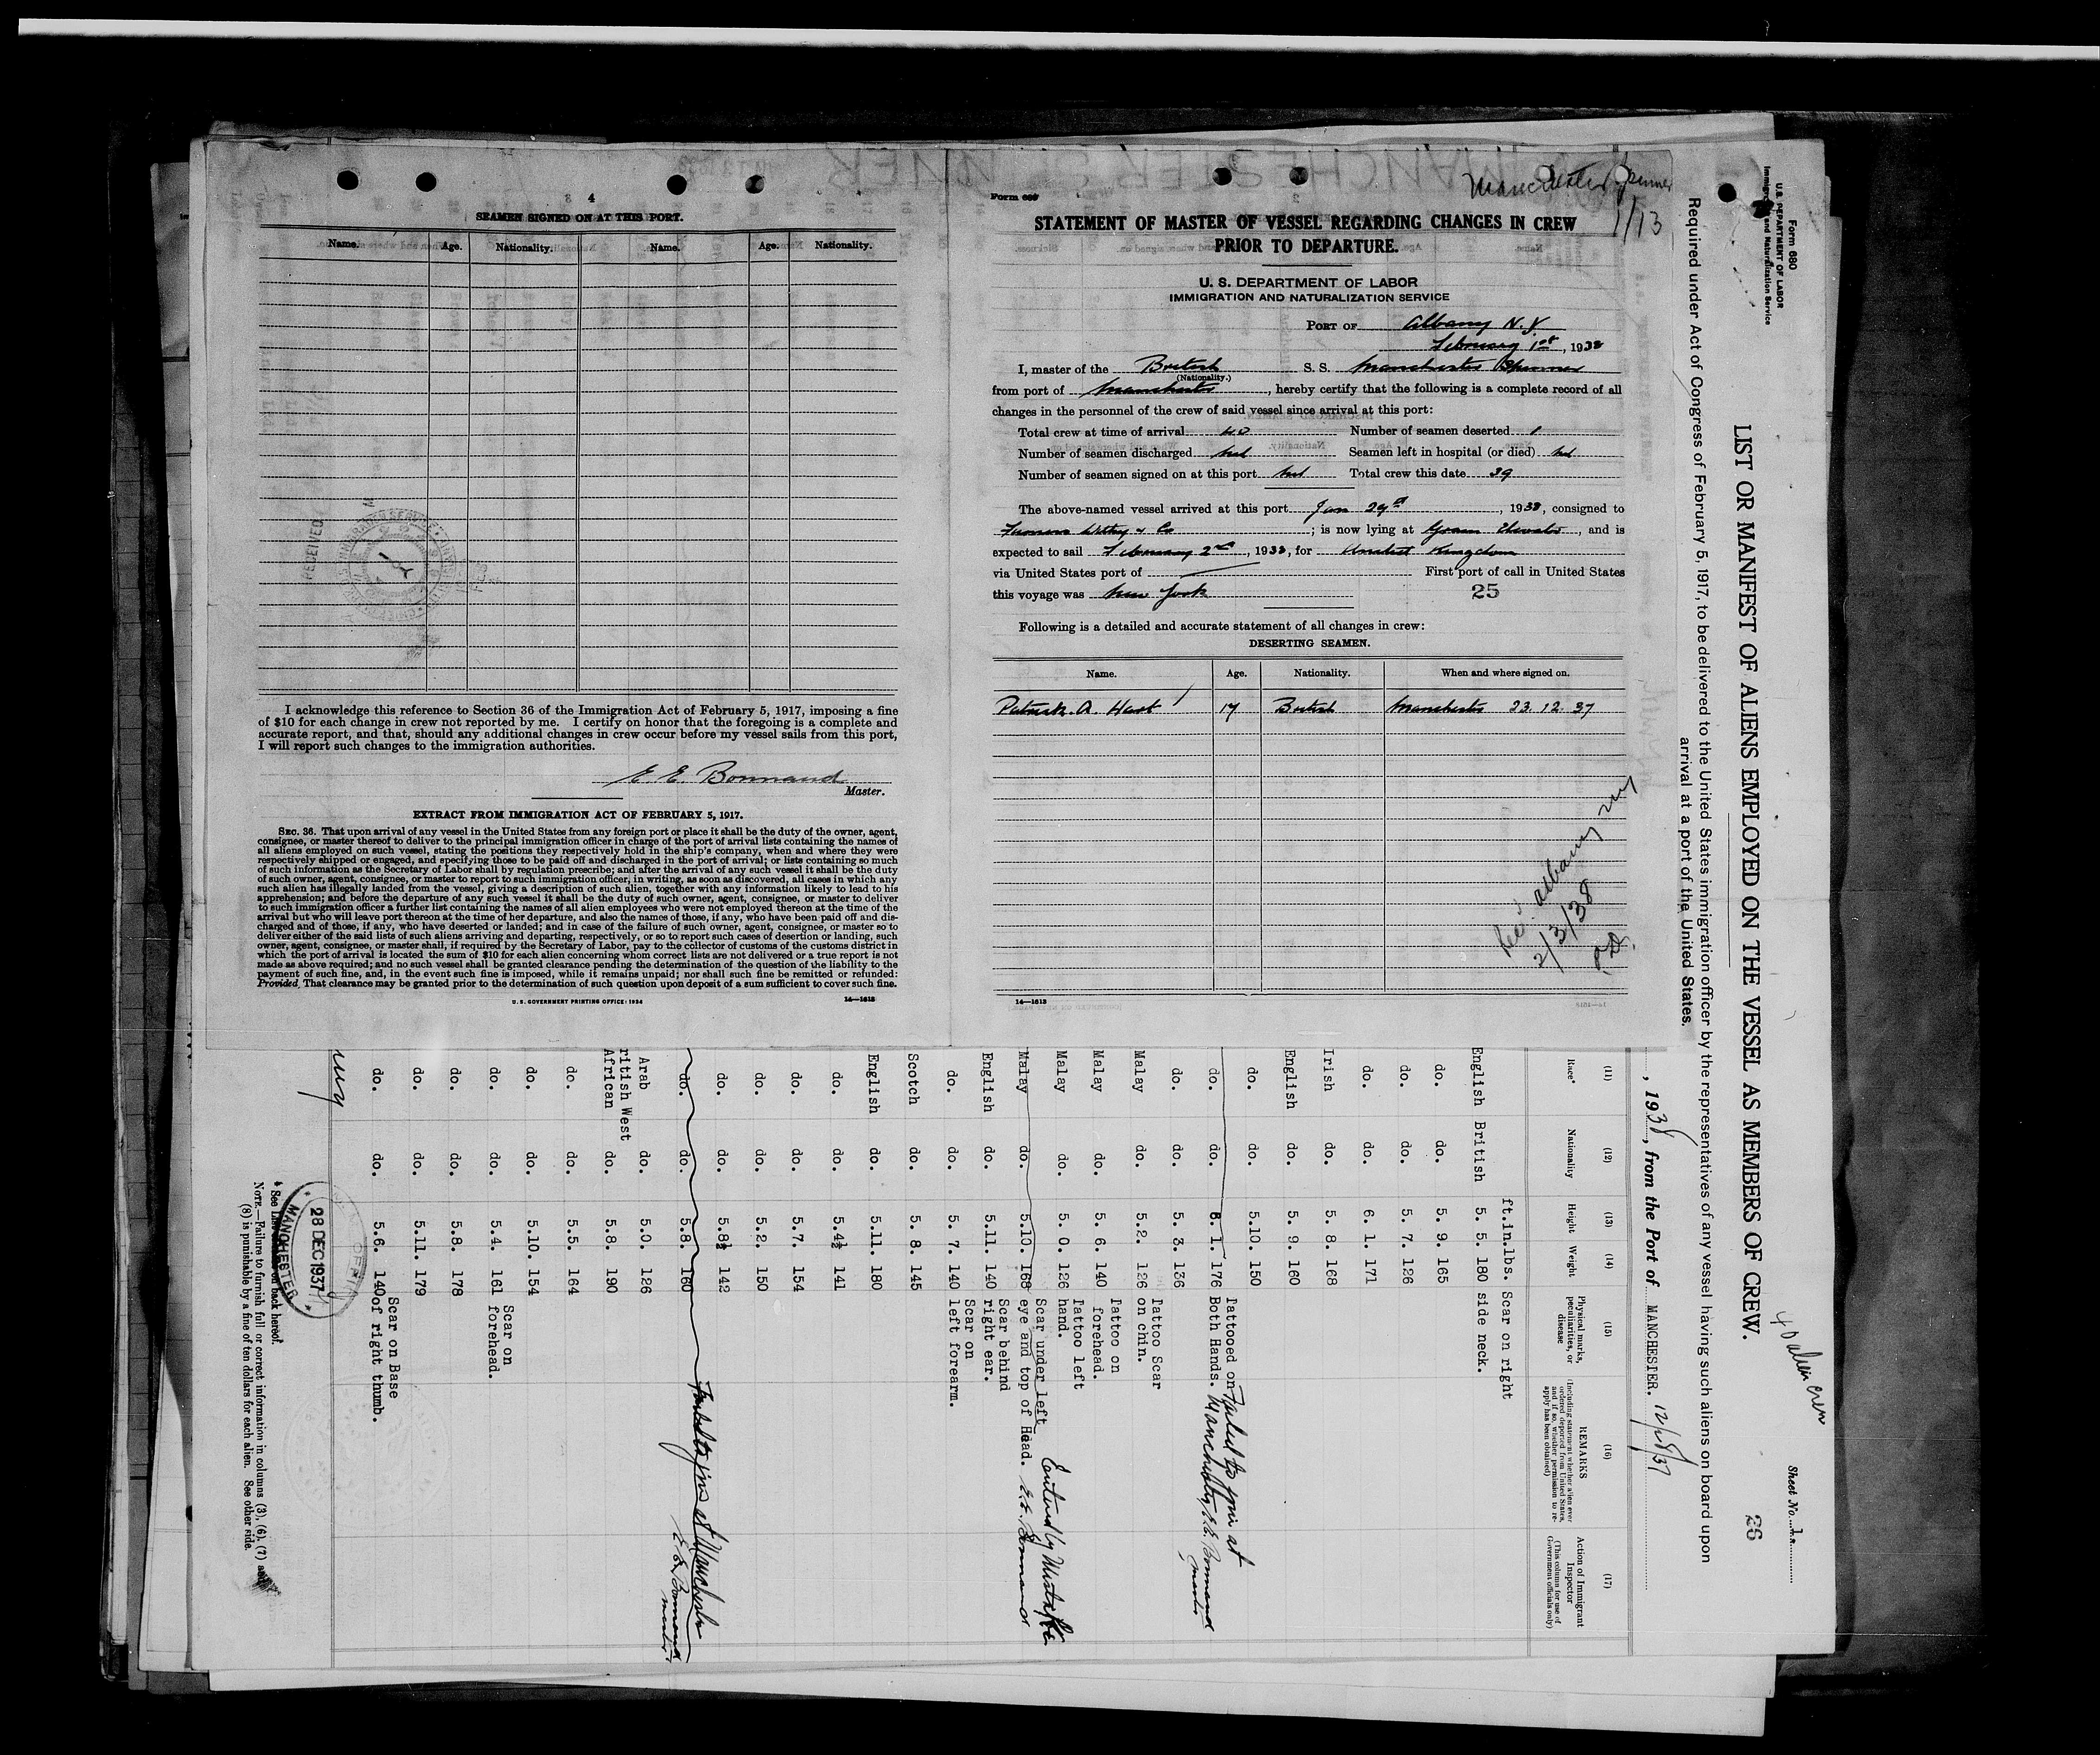 4
SEAMEN SIGNED ON AT THIS PORT.
Name. Age. Nationality. Name. Age. Nationality.
RECEIVED
I acknowledge this reference to Section 36 of the Immigration Act of February 5, 1917, imposing a fine
of $10 for each change in crew not reported by me. I certify on honor that the foregoing is a complete and
accurate report, and that, should any additional changes in crew occur before my vessel sails from this port,
I will report such changes to the immigration authorities.
E. E. Bonnaud
Master.
EXTRACT FROM IMMIGRATION ACT OF FEBRUARY 5, 1917.
SEC. 36. That upon arrival of any vessel in the United States from any foreign port or place it shall be the duty of the owner, agent,
consignee, or master thereof to deliver to the principal immigration officer in charge of the port of arrival lists containing the names of
all aliens employed on such vessel, stating the positions they respectively hold in the ship's company, when and where they were
respectively shipped or engaged, and specifying those to be paid off and discharged in the port of arrival; or lists containing so much
of such information as the Secretary of Labor shall by regulation prescribe; and after the arrival of any such vessel it shall be the duty
of such owner, agent, consignee, or master to report to such immigration officer, in writing, as soon as discovered, all cases in which any
such alien has illegally landed from the vessel, giving a description of such alien, together with any information likely to lead to his
apprehension; and before the departure of any such vessel it shall be the duty of such owner, agent, consignee, or master to deliver
to such immigration officer a further list containing the names of all alien employees who were not employed thereon at the time of the
arrival but who will leave port thereon at the time of her departure, and also the names of those, if any, who have been paid off and dis-
charged and of those, if any, who have deserted or landed; and in case of the failure of such owner, agent, consignee, or master so to
deliver either of the said lists of such aliens arriving and departing, respectively, or so to report such cases of desertion or landing, such
owner, agent, consignee, or master shall, if required by the Secretary of Labor, pay to the collector of customs of the customs district in
which the port of arrival is located the sum of $10 for each alien concerning whom correct lists are not delivered or a true report is not
made as above required; and no such vessel shall be granted clearance pending the determination of the question of the liability to the
payment of such fine, and, in the event such fine is imposed, while it remains unpaid; nor shall such fine be remitted or refunded:
Provided, That clearance may be granted prior to the determination of such question upon deposit of a sum sufficient to cover such fine.
U. S. GOVERNMENT PRINTING OFFICE: 1934 14—1613
Form 689
Manchester Spinner
1/13
STATEMENT OF MASTER OF VESSEL REGARDING CHANGES IN CREW
PRIOR TO DEPARTURE.
U. S. DEPARTMENT OF LABOR
IMMIGRATION AND NATURALIZATION SERVICE
PORT OF Albany N.Y.
February 1st, 1938
I, master of the British S. S. Manchester Spinner
(Nationality.)
from port of Manchester, hereby certify that the following is a complete record of all
changes in the personnel of the crew of said vessel since arrival at this port:
Total crew at time of arrival 40 Number of seamen deserted 1
Number of seamen discharged nil Seamen left in hospital (or died) nil
Number of seamen signed on at this port nil Total crew this date 39
The above-named vessel arrived at this port Jan 29th, 1938, consigned to
Furness Withy & Co; is now lying at Grain Elevator, and is
expected to sail February 2nd, 1938, for United Kingdom
via United States port of First port of call in United States
this voyage was New York 25
Following is a detailed and accurate statement of all changes in crew:
DESERTING SEAMEN.
Name. Age. Nationality. When and where signed on.
Patrick. A. Hart 17 British Manchester 23.12.37
Rec'd. Albany NY
2/3/38
14—1613
Form 680
U. S. DEPARTMENT OF LABOR
Immigration and Naturalization Service
Sheet No. 1
26
40 alien crew
LIST OR MANIFEST OF ALIENS EMPLOYED ON THE VESSEL AS MEMBERS OF CREW.
Required under Act of Congress of February 5, 1917, to be delivered to the United States immigration officer by the representatives of any vessel having such aliens on board upon
arrival at a port of the United States.
, 1938, from the Port of MANCHESTER. 12/28/37
(11) (12) (13) (14) (15) (16) (17)
Race* Nationality Height Weight Physical marks, peculiarities, or disease REMARKS (Including statement whether alien ever ordered deported from United States, and if so, whether permission to reapply has been obtained) Action of Immigrant Inspector (This column for use of Government officials only)
ft.in.lbs. Scar on right
English British 5. 5. 180 side neck.
do. do. 5. 9. 165
do. do. 5. 7. 126
do. do. 6. 1. 171
Irish do. 5. 8. 168
English do. 5. 9. 160
do. do. 5.10. 150
Tattooed on Failed to join at
do. do. 6. 1. 176 Both Hands. Manchester, E.E. Bonnaud
master
do. do. 5. 3. 136
Tattoo Scar
Malay do. 5.2. 126 on chin.
Tattoo on
Malay do. 5. 6. 140 forehead.
Tattoo left
Malay do. 5. 0. 126 hand.
Scar under left Entered by Mistake
Malay do. 5.10. 168 eye and top of Head. E.E. Bonnaud
Scar behind
English do. 5.11. 140 right ear.
Scar on
do. do. 5. 7. 140 left forearm.
Scotch do. 5. 8. 145
English do. 5.11. 180
do. do. 5.4½ 141
do. do. 5.7. 154
do. do. 5.2. 150
do. do. 5.8½ 142
do. do. 5.8. 160 Failed to join at Manchester
E.E. Bonnaud
master
Arab do. 5.0. 126
ritish West
African do. 5.8. 190
do. do. 5.5. 164
do. do. 5.10. 154
Scar on
do. do. 5.4. 161 forehead.
do. do. 5.8. 178
do. do. 5.11. 179
Scar on Base
do. do. 5.6. 140 of right thumb.
28 DEC 1937
MANCHESTER
on back hereof.
NOTE.—Failure to furnish full or correct information in columns (3), (6), (7) and
(8) is punishable by a fine of ten dollars for each alien. See other side.